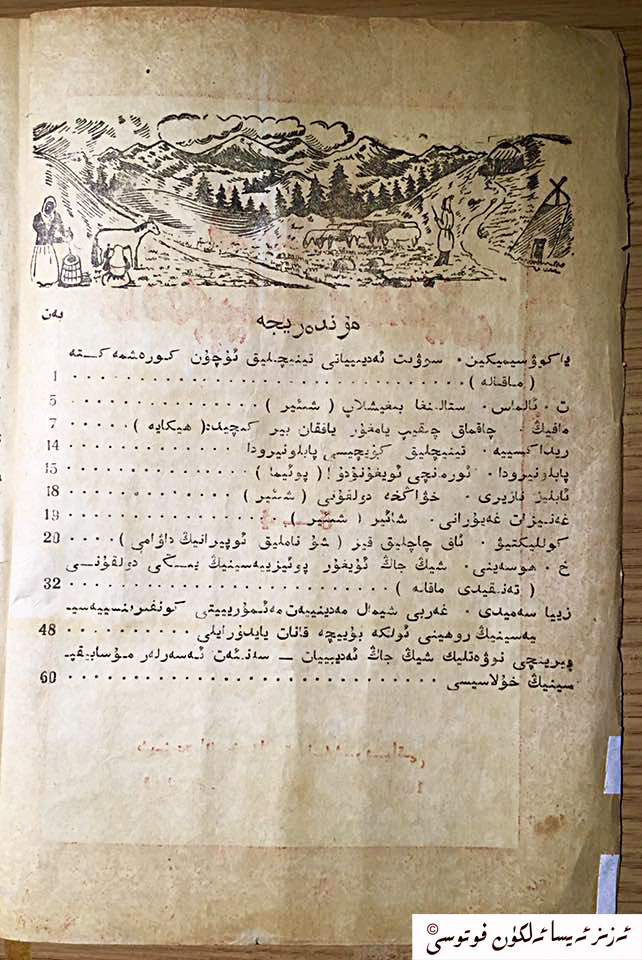 بەت
مۇندەرىجە
ياكوۋ سىمىكىن. سوۋېت ئەدىبىياتى تىنىچلىق ئۈچۈن كۈرەشمەكتە
( ماقالە ) 1
ت . ئالماس . ستالىنغا بېغىشلاپ ( شىئىر ) 5
مافېڭ . چاقماق چىقىپ يامغۇر ياققان بىر كېچىدە: ( ھېكايە ) 7
رېداكسىيە . تىنىچلىق كۈيچىسى پابلونېرودا 14
پابلونېرودا . ئورمانچى ئويغۇنۇدۇ! ( پوئېما ) 15
ئابلىز نازىرى . خۇاڭخې دولقۇنى ( شىئىر ) 18
غەنىزات غەيۇرانى . شائىر ( شىئىر ) 19
كوللېكتىۋ . ئاق چاچلىق قىز ( شۇ ناملىق ئوپېرانىڭ داۋامى ) 20
خ . ھۈسەينى . شىڭ جاڭ ئۇيغۇر پوئېزىيەسىنىڭ يېڭى دولقۇنى
( تەنقىدى ماقالە ) 32
زىيا سەمىدى . غەربى شىمال مەدىنىيەت مەئمۇرىيىتى كونفېرىنسىيەسى-
يەسىنىڭ روھىنى ئولكە بۇيىچە قانات يايدۇرايلى 48
بىرىنچى نۆۋەتلىك شىڭ جاڭ ئەدىبىيات — سەنئەت ئەسەرلەر مۇسابىقى-
سىنىڭ خۇلاسىسى 60
©ئەزىز ئەيسا ئەلكۈن فوتوسى